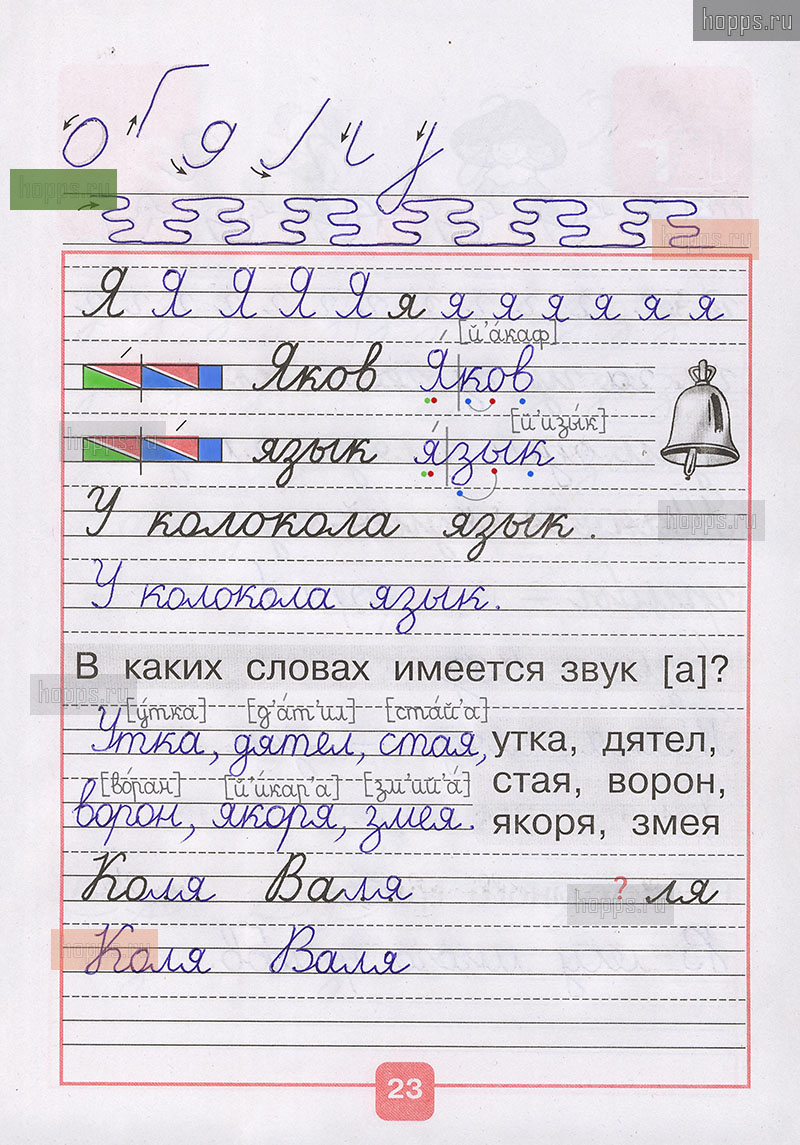 hopps.ru
о Г я л и у
hopps.ru
hopps.ru
Я Я Я Я Я я я я я я я я
[й'áкаф]
Яков Я́ков
[й'изы́к]
hopps.ru
язык язык
У колокола язык.
hopps.ru
У колокола язык.
В каких словах имеется звук [а]?
hopps.ru
[у́тка] [д'áт'ил] [стáй'а]
Утка, дятел, стая, утка, дятел,
[вóран] [й'и́кар'а] [зм'ий'á] стая, ворон,
ворон, якоря, змея. якоря, змея
Коля Валя ? ля
hopps.ru
hopps.ru
Коля Валя
23